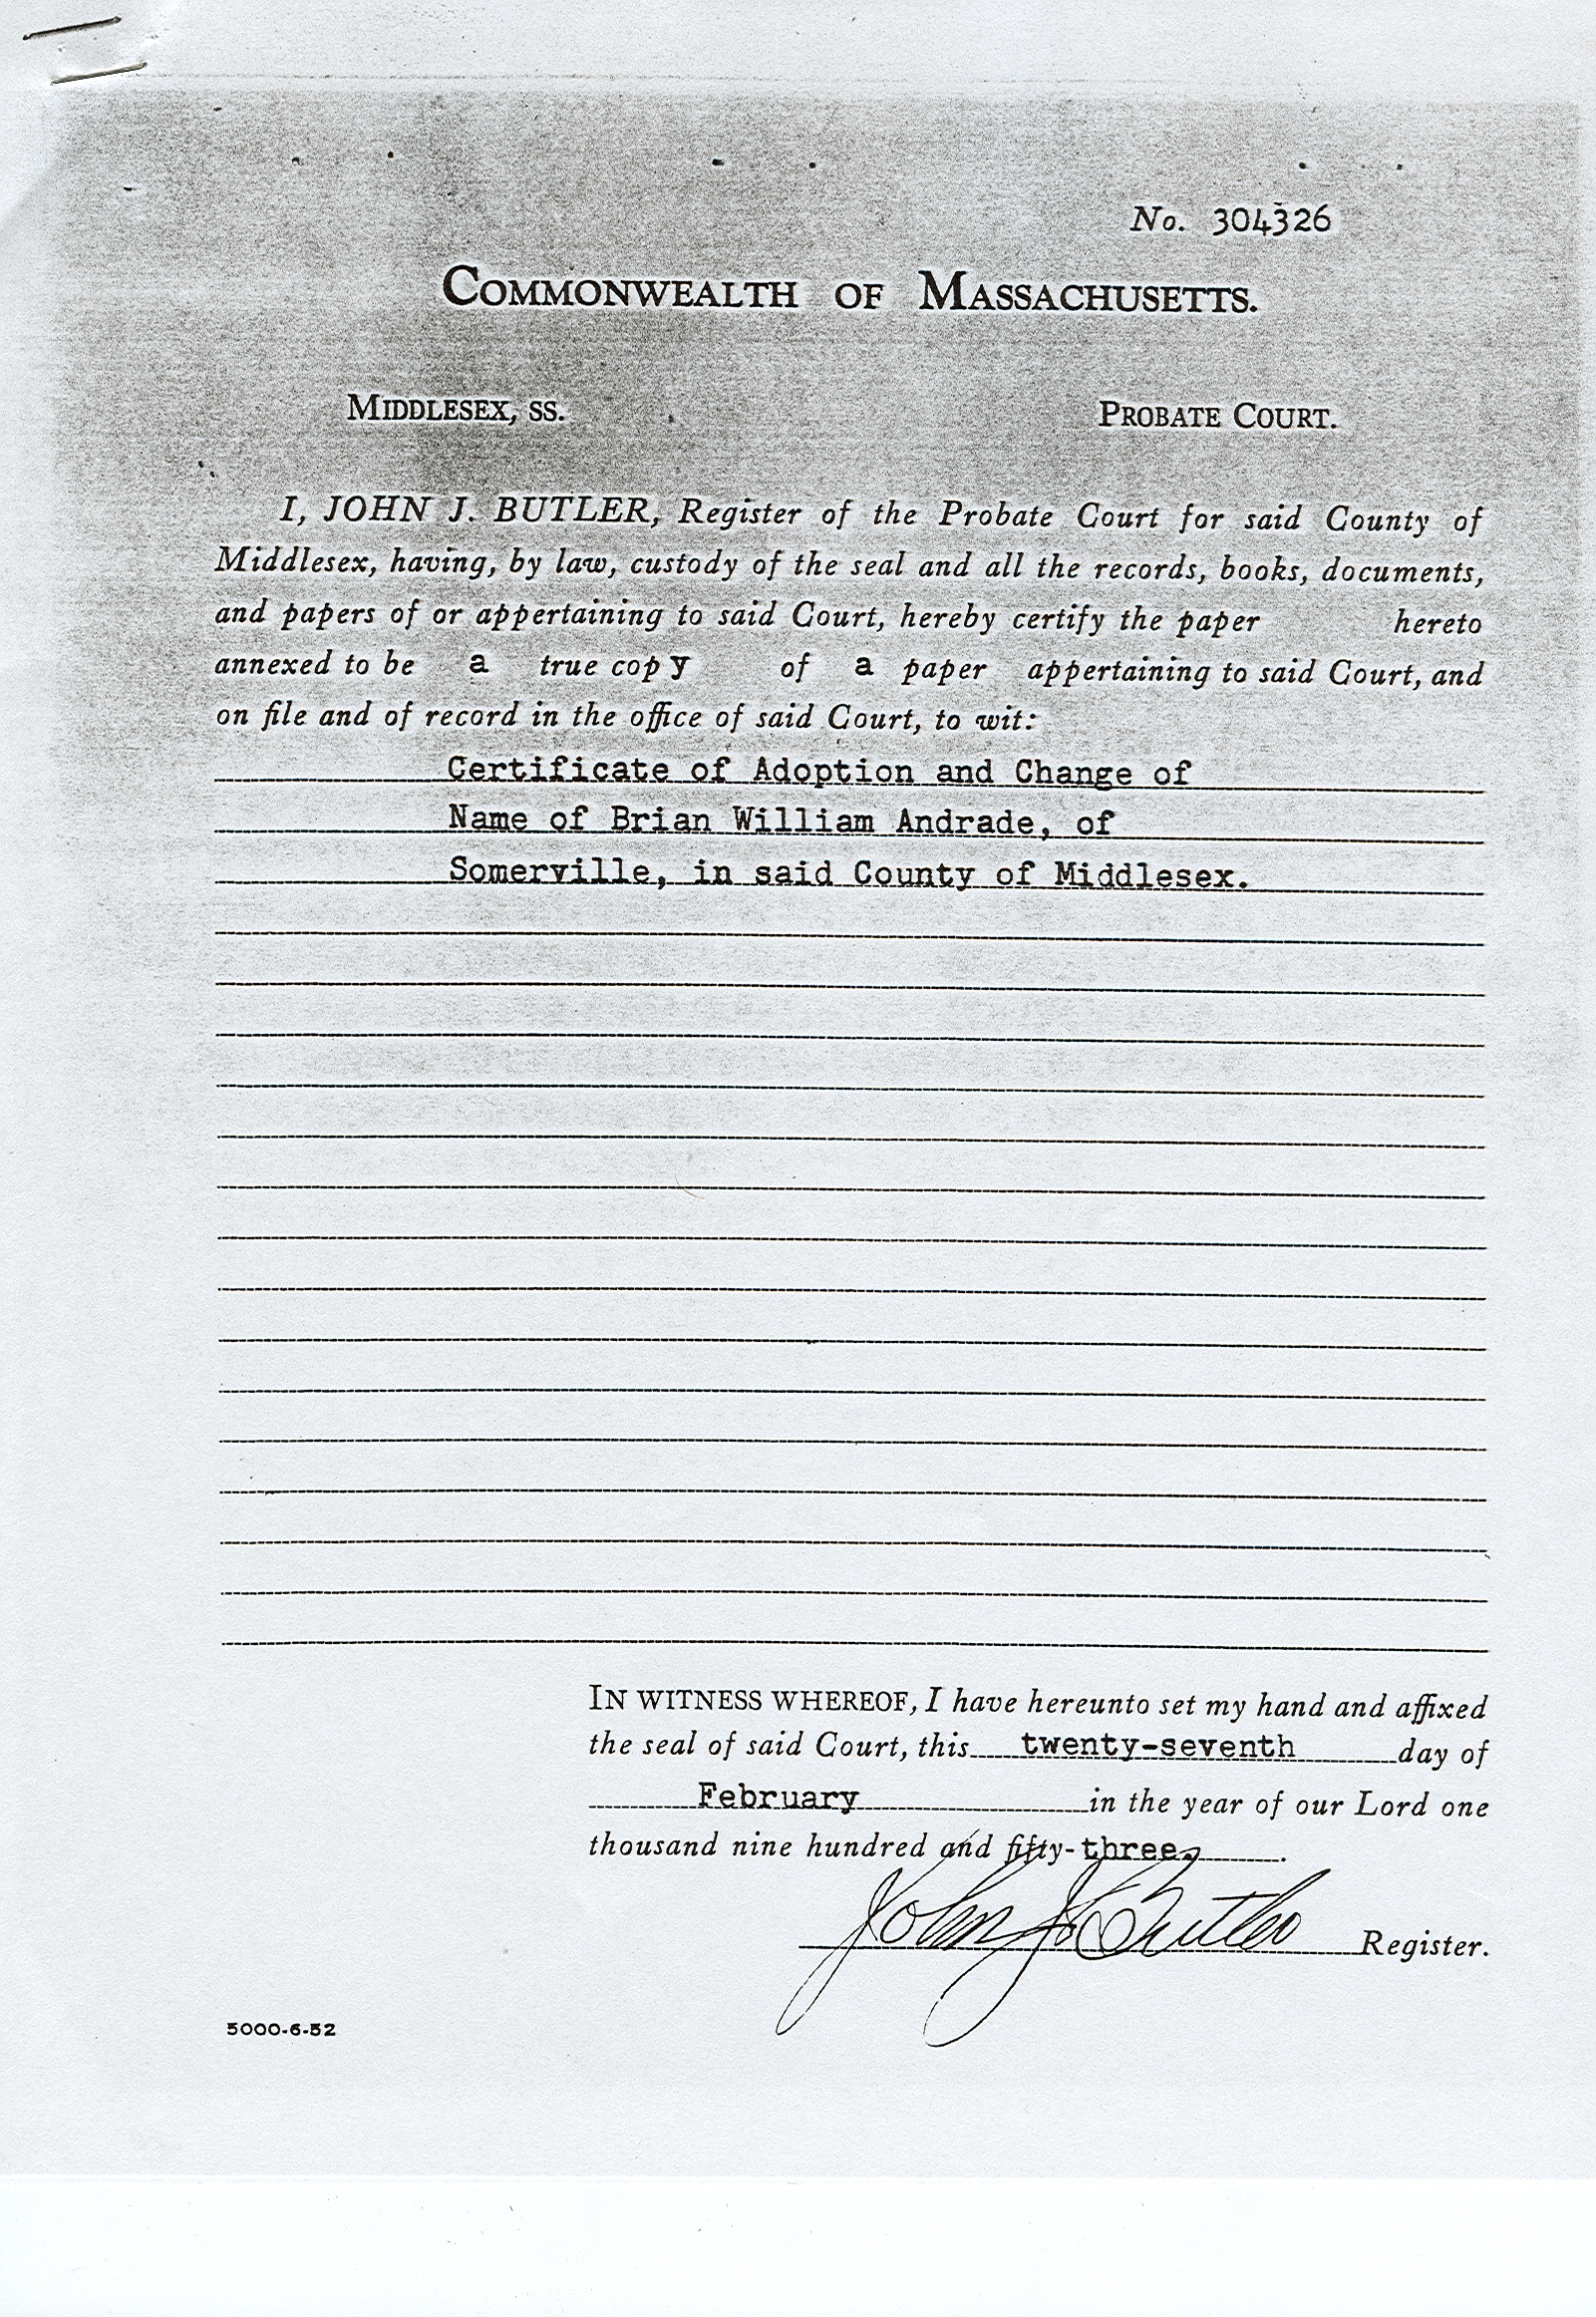 No. 304326
COMMONWEALTH OF MASSACHUSETTS.
MIDDLESEX, SS. PROBATE COURT.
I, JOHN J. BUTLER, Register of the Probate Court for said County of
Middlesex, having, by law, custody of the seal and all the records, books, documents,
and papers of or appertaining to said Court, hereby certify the paper hereto
annexed to be a true copy of a paper appertaining to said Court, and
on file and of record in the office of said Court, to wit:
Certificate of Adoption and Change of
Name of Brian William Andrade, of
Somerville, in said County of Middlesex.
IN WITNESS WHEREOF, I have hereunto set my hand and affixed
the seal of said Court, this twenty-seventh day of
February in the year of our Lord one
thousand nine hundred and fifty-three.
John J. Butler Register.
5000-6-52